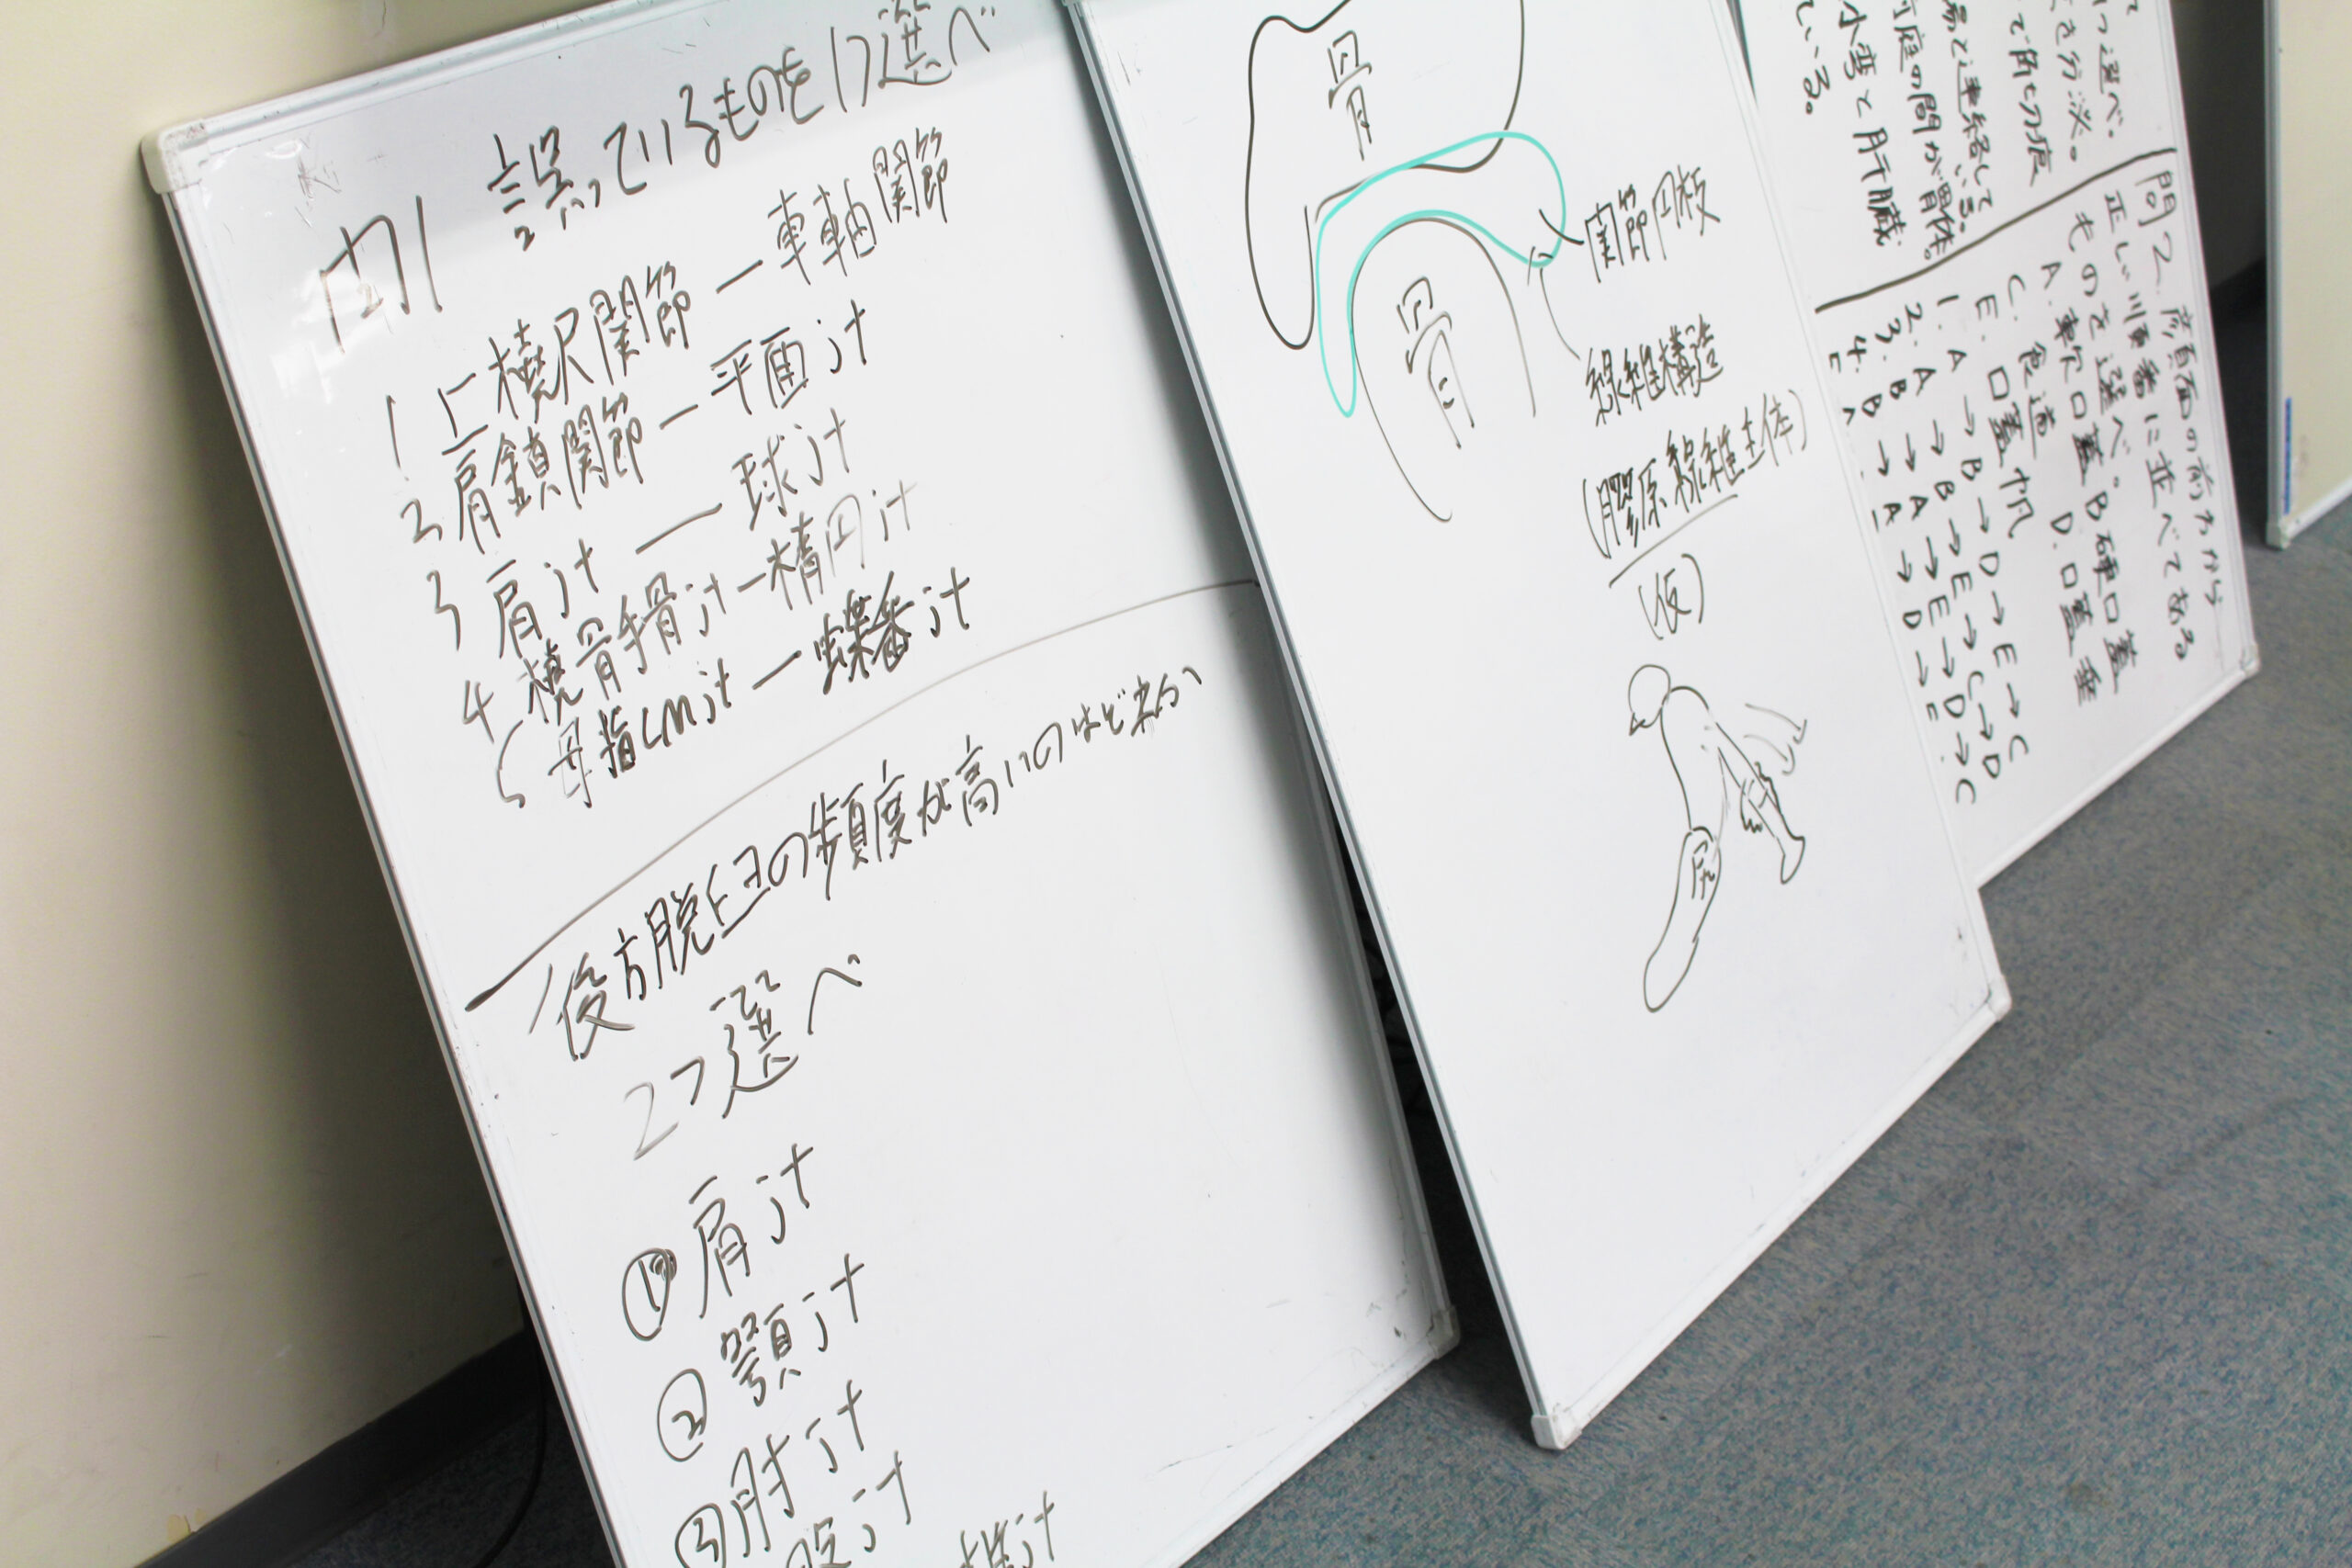 問1 誤っているものを1つ選べ
1 上橈尺関節 — 車軸関節
2 肩鎖関節 — 平面jt
3 肩jt — 球jt
4 橈骨手骨jt — 楕円jt
5 母指CMjt — 蝶番jt
後方脱臼の頻度が高いのはどれか
2つ選べ
① 肩jt
② 顎jt
③ 肘jt
股jt
jt
骨
骨
関節円板
線維構造
(膠原線維主体)
(仮)
尻
つ選べ。
を分泌。
で角切痕
と連絡している。
庭の間が胃体。
小弯と肝臓
ている。
問2. 顔面の前方から
正しい順番に並べてある
ものを選べ。
A. 軟口蓋 B 硬口蓋
C. 食道 D. 口蓋垂
E. 口蓋帆
1. A → B → D → E → C
2. A → B → E → C → D
3. B → A → E → D → C
4. B → A → D → E